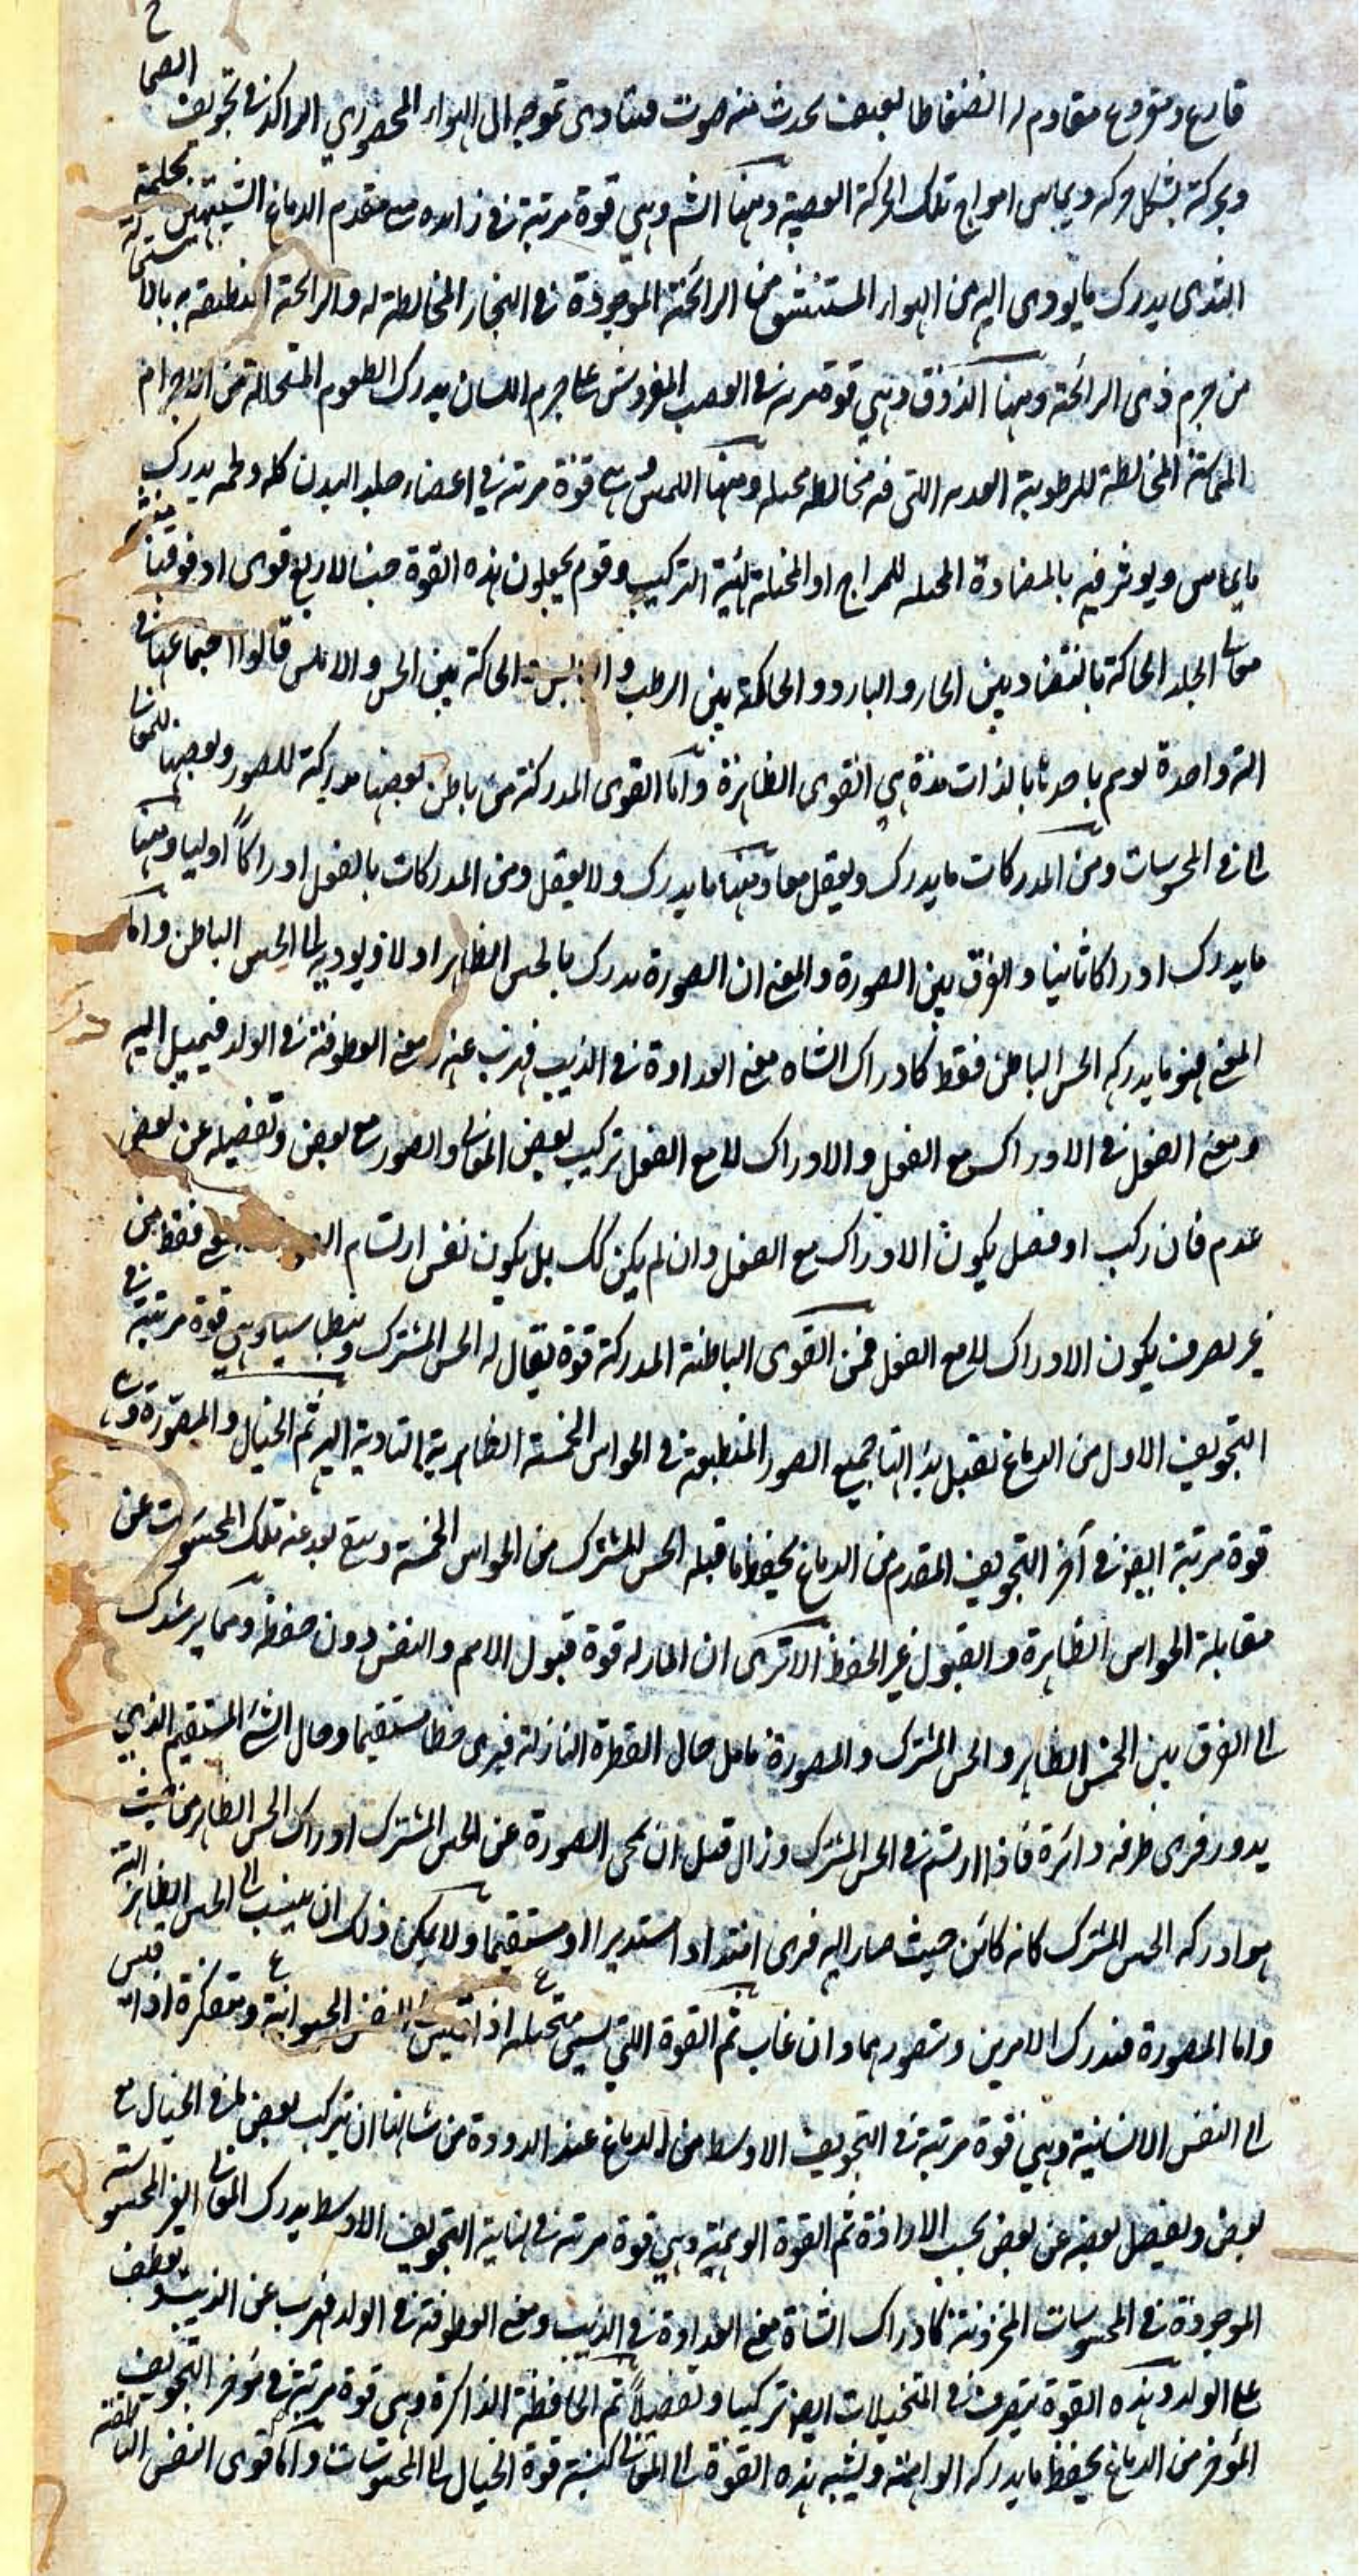 قارع ومقروع مقاوم له انضغاطا بعنف يحدث منه صوت فيتادى تموجه الى الهواء المحصور الراكد في تجويف الصماخ
ويحركة بشكل حركه ويماس امواج تلك الحركة العصبة ومنها الشم وهي قوة مرتبة في زايدتى مقدم الدماغ الشبيهتين بحلمتى
الثدى يدرك ما يودى اليه من الهواء المستنشق من الرائحة الموجودة في البخار المخالطة له والرائحة المنطبعة به بالاستحالة
من جرم ذى الرائحة ومنها الذوق وهي قوة مرتبة في العصب المفروش على جرم اللسان يدرك الطعوم المتحللة من الاجرام
المماسة المخالطة للرطوبة العذبة اللتى فيه مخالطه محيله ومنها اللمس وهي قوة مرتبة في اعضاء جلد البدن كله ولحمه يدرك
ما يماس ويوثر فيه بالمضادة المحيله للمزاج او المحيلة لهيئة التركيب وقوم يجعلون هذه القوة جنسا لاربع قوى او فوقها منبثة
معا في الجلد الحاكمة بالتضاد بين الحار والبارد والحاكمة بين الرطب واليابس الحاكمة بين الخشن والاملس قالوا اجتماعها في
الة واحدة يوهم باحدها بالذات هذه هي القوى الظاهرة واما القوى المدركة من باطن بعضها مدركة للصور وبعضها للمعانى
التى في المحسوسات ومن المدركات ما يدرك ويفعل معا ومنها ما يدرك ولا يفعل ومن المدركات بالفعل ادراكا اوليا ومنها
ما يدرك ادراكا ثانيا والفرق بين الصورة والمعنى ان الصورة يدرك بالحس الظاهر اولا ويوديها الى الحس الباطن واما
المعنى فهو ما يدركه الحس الباطن فقط كادراك الشاه معنى العداوة في الذيب فهرب عنه ومعنى العطوفة في الولد فيميل اليه
ومعنى الفعل في الادراك مع الفعل والادراك لا مع الفعل تركيب بعض المعانى والصور مع بعض وتفصيله عن بعض
عدم فان ركب او فصل يكون الادراك مع الفعل وان لم يكن كك بل يكون نفس ارتسام فقط من
غير تصرف يكون الادراك لا مع الفعل فمن القوى الباطنة المدركة قوة يقال له الحس المشترك وبنطاسيا وهي قوة مرتبة في
التجويف الاول من الدماغ تقبل بذاتها جميع الصور المنطبعة في الحواس الخمسة الظاهرية التادية اليه ثم الخيال والمصورة وهي
قوة مرتبة ايضا في آخر التجويف المقدم من الدماغ يحفظ ما قبله الحس المشترك من الحواس الخمسة ويبقى بعد غيبة تلك المحسوسات عن
مقابلة الحواس الظاهرة والقبول غير الحفظ الا ترى ان الماء له قوة قبول الاسم والنقش دون حفظه ومما يرشدك
الى الفرق بين الحس الظاهر والحس المشترك والمصورة تامل حال القطرة النازلة فيرى خطا مستقيما وحال الشئ المستقيم الذى
يدور فيرى طرفه دائرة فاذا ارتسم في الحس المشترك وزال قبل ان يمحى الصورة عن الحس المشترك ادراك الحس الظاهر من حيث
هو ادركه الحس المشترك كانه كائن حيث صار اليه فيرى امتدادا مستديرا او مستقيما ولا يمكن ذلك ان ينسب الى الحس الظاهر البتة
واما المصورة فيدرك الامرين وتصورهما وان غاب ثم القوة اللتى تسمى متخيلة اذا قيس الى النفس الحيوانية ومتفكرة اذا قيس
الى النفس الانسانية وهي قوة مرتبة في التجويف الاوسط من الدماغ عند الدودة من شانها ان يركب بعض ما في الخيال مع
بعض ويفصل بعضه عن بعض بحسب الارادة ثم القوة الوهمية وهي قوة مرتبة في نهاية التجويف الاوسط يدرك المعانى الغير المحسوسة
الموجودة في المحسوسات المخزونة كادراك الشاة معنى العداوة في الذيب ومعنى العطوفة في الولد فهرب عن الذيب وتعطف
على الولد وهذه القوة يتصرف في المتخيلات ايضا تركيبا وتفصيلا ثم الحافظة الذاكرة وهى قوة مرتبة في مؤخر التجويف
المؤخر من الدماغ يحفظ ما يدركه الواهمة ونسبة هذه القوة الى المعانى كنسبة قوة الخيال الى المحسوسات واما قوى النفس الناطقة